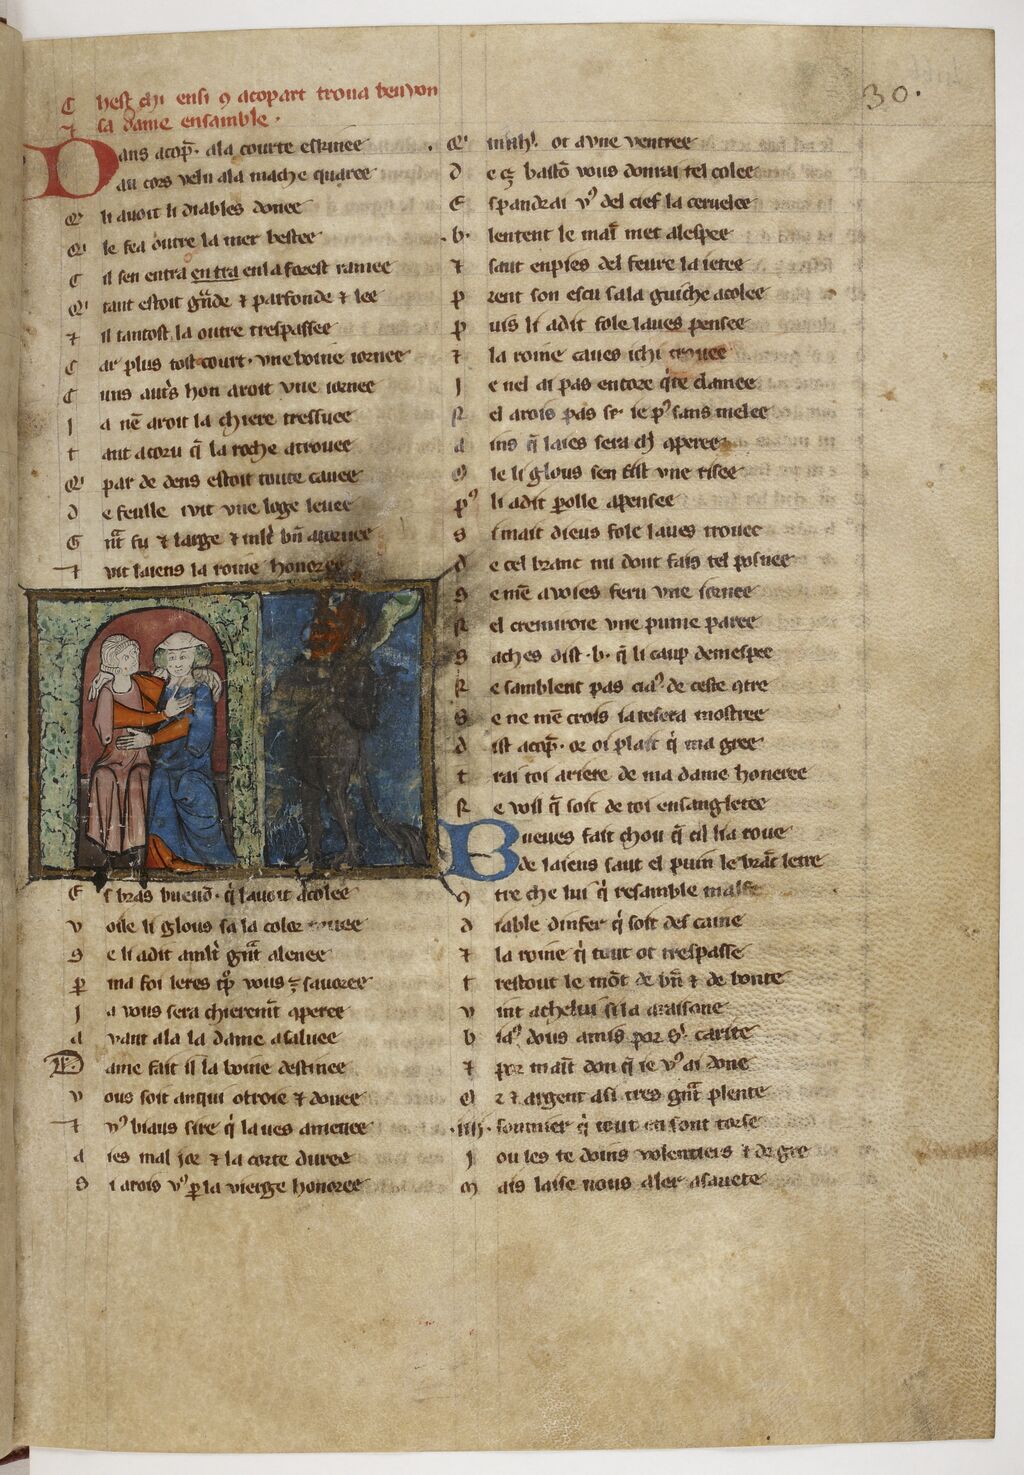 30.
C hest chi ensi 9 acopart troua beuvon
⁊ sa dame ensamble ·
Dans acop̄· ala courte eskinee
au cors velu ala mache quaree
Q' li auoit li diables donee
Q' le fea outre la mer betee
C il sen entra en tra enla forest ramee
Q' tant estoit gñde ⁊ parfonde ⁊ lee
⁊ il tantost la outre trespassee
C ar plus tost court · vne boine iornee
C uns aut's hon aroit vne iornee
I a nē aroit la chiere tressuee
t ant a coru q̄ la roche a trouee
Q' par de dens estoit toute cauee
d e feulle i vit vne loge leuee
G
⁊ vit laiens la roine honoree
E s bras bueuō · q̇ lauoit acolee
v oide li glous sa la color
S e li a dit
p ma foi leres vous
I a vous sera chierem̄t 9peree
a vant ala la dame a saluee
D ame fait il la boine destinee
v ous soit anqui otroie ⁊ donee
⁊ v⁹ biaus sire q̇ laues amenee
a ies mal ioe ⁊ la corte duree
S i arois v⁹ p̱ la vierge honoree
Q' ot a vne ventree
d e cest bastō vous donrai tel colee
E spandrai v⁹ del cief la ceruelee
· b · lentent le mai met a lespee
⁊ saut en pies del feure la ietee
p rent son escu sa la guiche acolee
p uis li a dit fole laues pensee
⁊ la roine caues ichi trouee
I e nel ai pas encore q̇te clamee
N el arois pas sans melee
a ins q̄ laies sera ch' 9peree
O ie li glous sen fist vne risee
p⁹ li a dit p̱olle apensee
S i mait dieus fole laues trouee
d e cel branc nu dont fais tel posnee
S e mē avoies feru vne iornee
N el cremiroie vne pume paree
S aches dist · b · q̄ li caup de mespee
N e samblent pas de ceste 9tre
S e ne mē crois ia te sera mostree
d ist acop̄ · or oi plait q̇ magree
t rai toi ariere de ma dame honeree
N e voil q̄ soit de toi ensangletee
Bueues fait chou q̄ cil li a roue
de laiens saut el puin le brāc letre
9 tre che lui q̇ resamble malfe
d iable dinfer q̇ soit des caine
⁊ la roine q̇ tout ot trespasse
t restout le mōt de bn̄ ⁊ de bonte
v int a chelui si la araisone
b ia⁹ dous amis por s' carite
⁊ por main don q̄ ie v⁹ ai done
O r ⁊ argent a si tres gñt plente
· iiij · sommier q̇ tout en sont torse
I ou les te doins volentiers ⁊ de gre
M ais laise nous aler a sauete